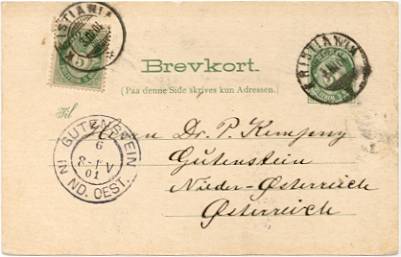 KRISTIANIA
KRISTIANIA
Brevkort.
(Paa denne Side skrives kun Adressen.)
Til
Herrn Dr. P. Kempny
Gutenstein
Nieder-Österreich
Österreich
GUTENSTEIN
9
8-IV
01
IN ND. OEST.